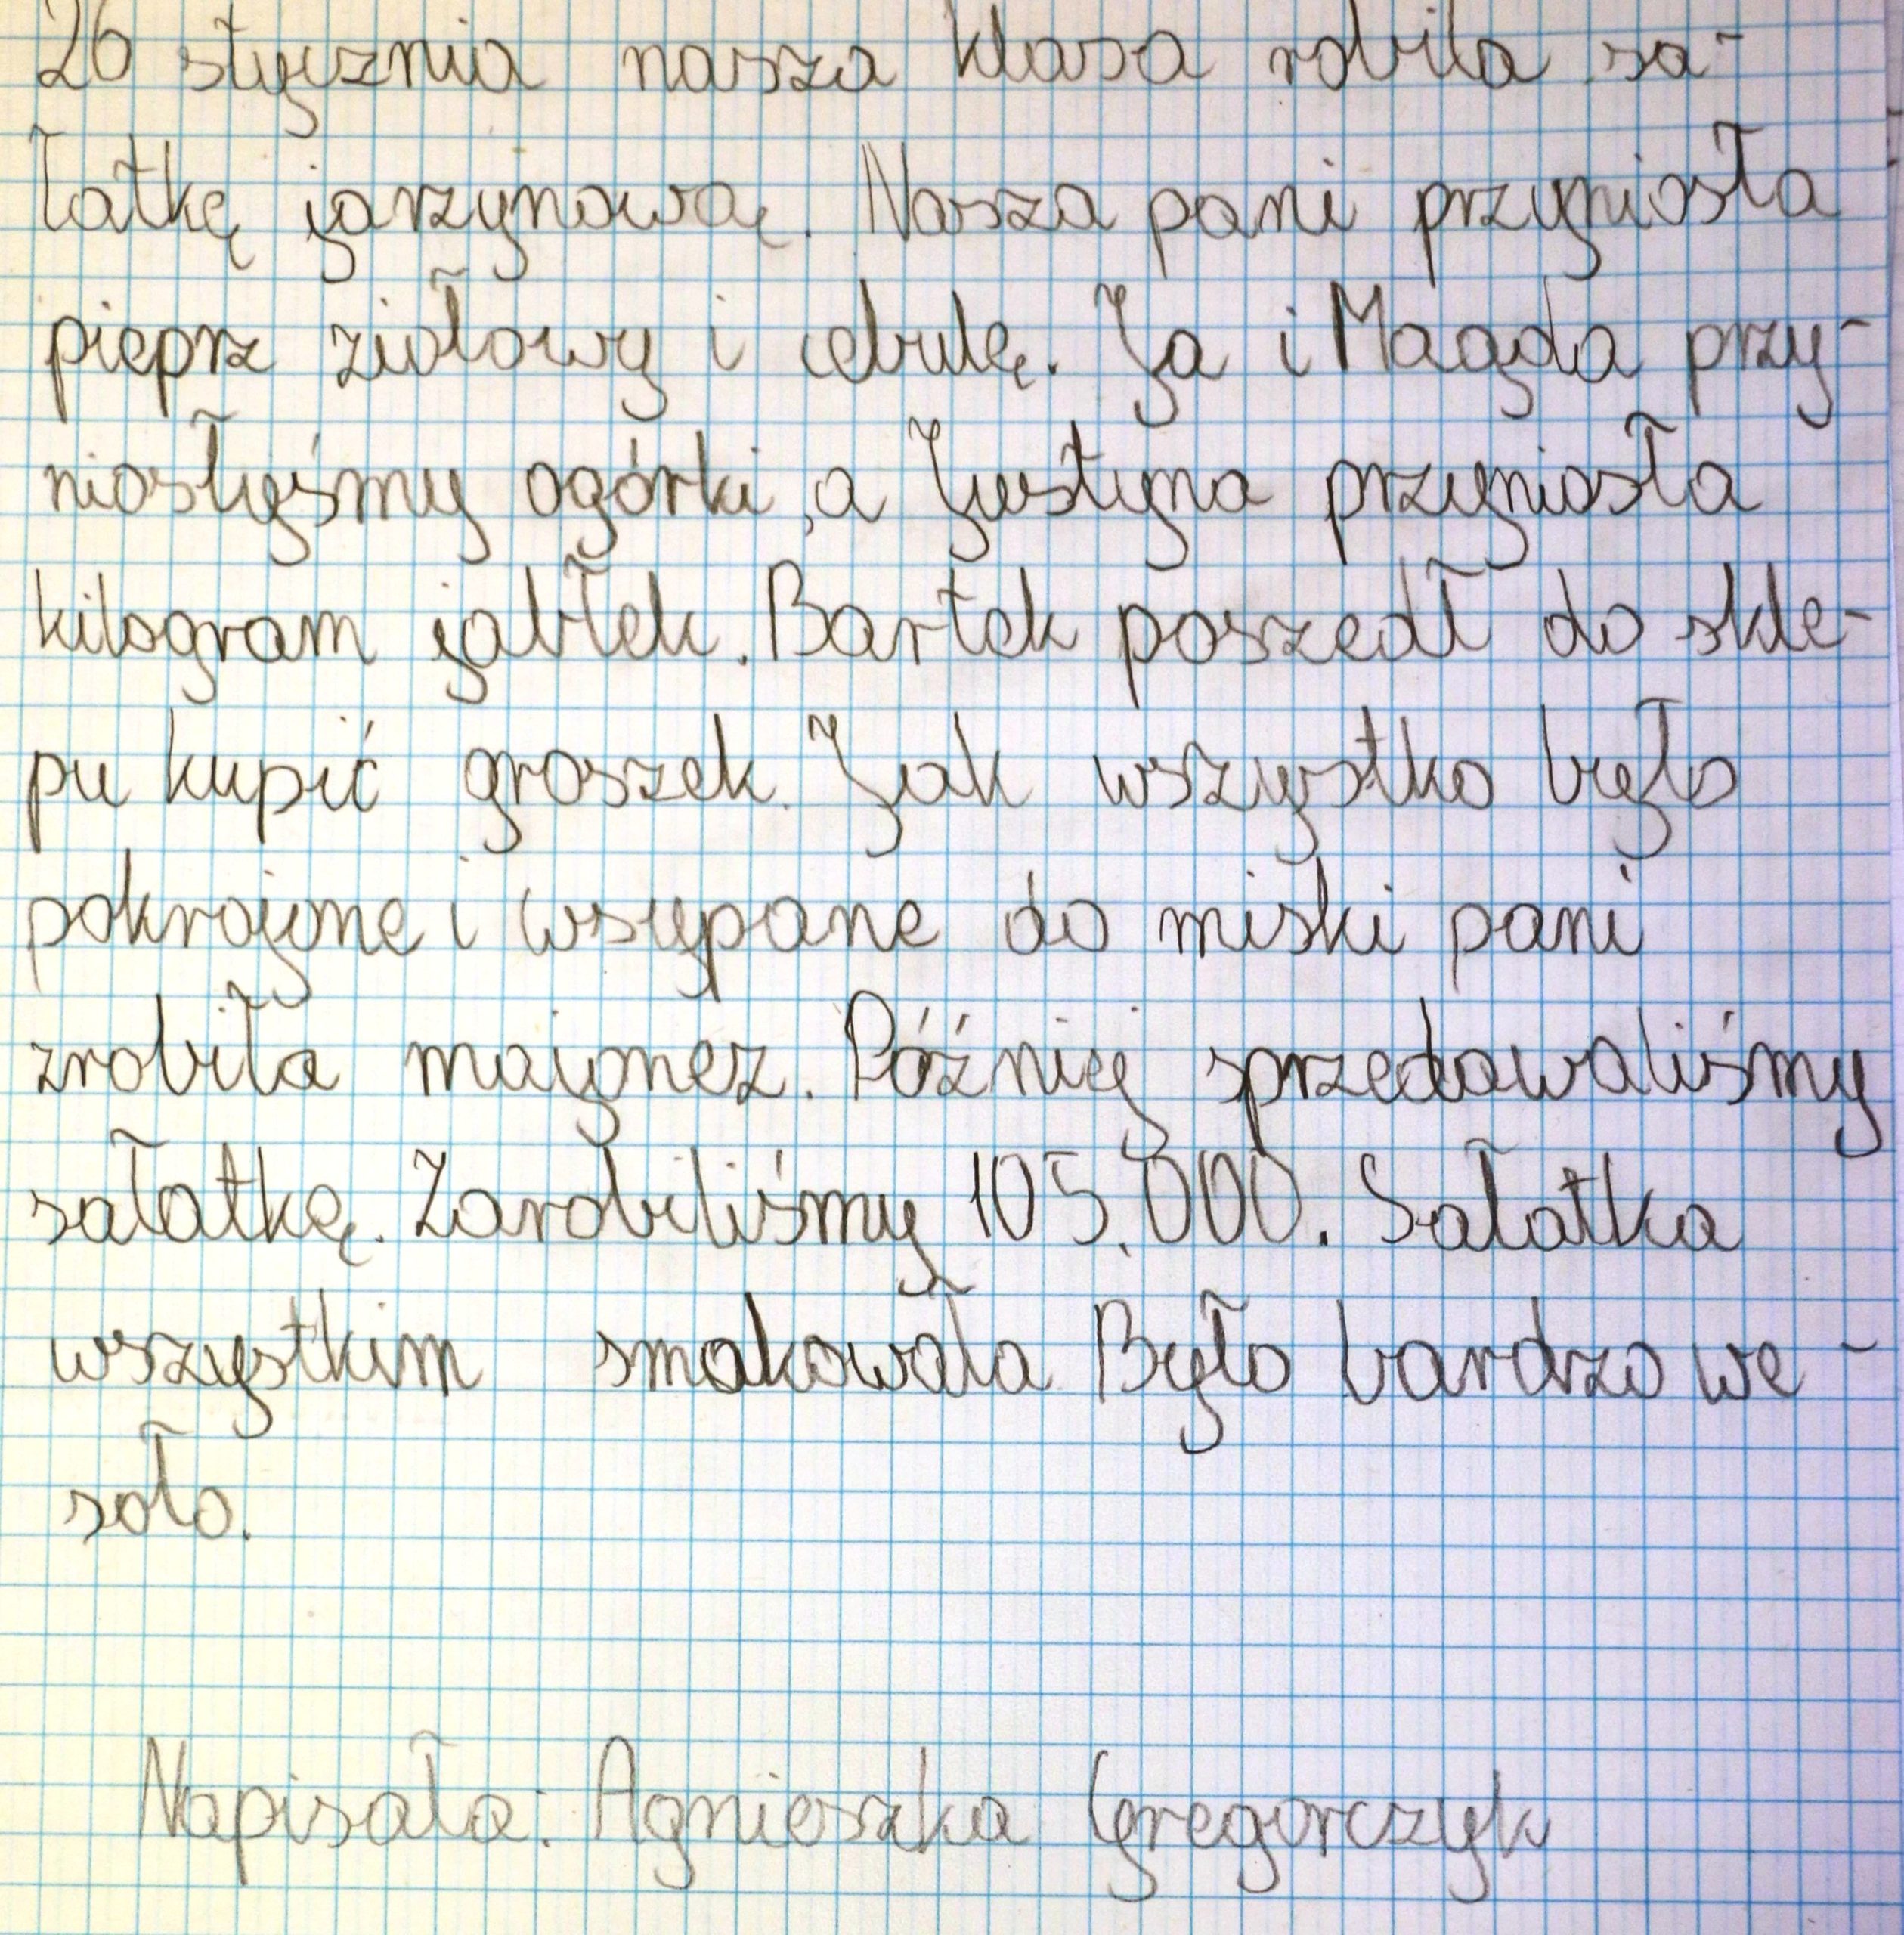 26 stycznia nasza klasa robiła sa-
łatkę jarzynową. Nasza pani przyniosła
pieprz ziołowy i cebulę. Ja i Magda przy-
niosłyśmy ogórki, a Justyna przyniosła
kilogram jabłek. Bartek poszedł do skle-
pu kupić groszek. Jak wszystko było
pokrojone i wsypane do miski pani
zrobiła majonez. Później sprzedawaliśmy
sałatkę. Zarobiliśmy 105.000. Sałatka
wszystkim smakowała Było bardzo we-
soło.
Napisała: Agnieszka Gregorczyk